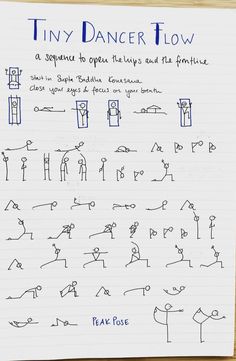 TINY DANCER FLOW
a sequence to open the hips and the frontline
start in Supta Buddha Konasana
close your eyes & focus on your breath
PEAK POSE